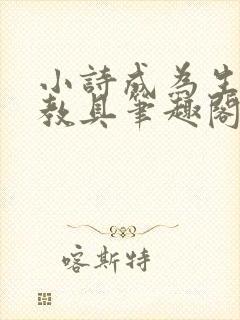 小詩成為生
教具筆趣閣
喀斯特